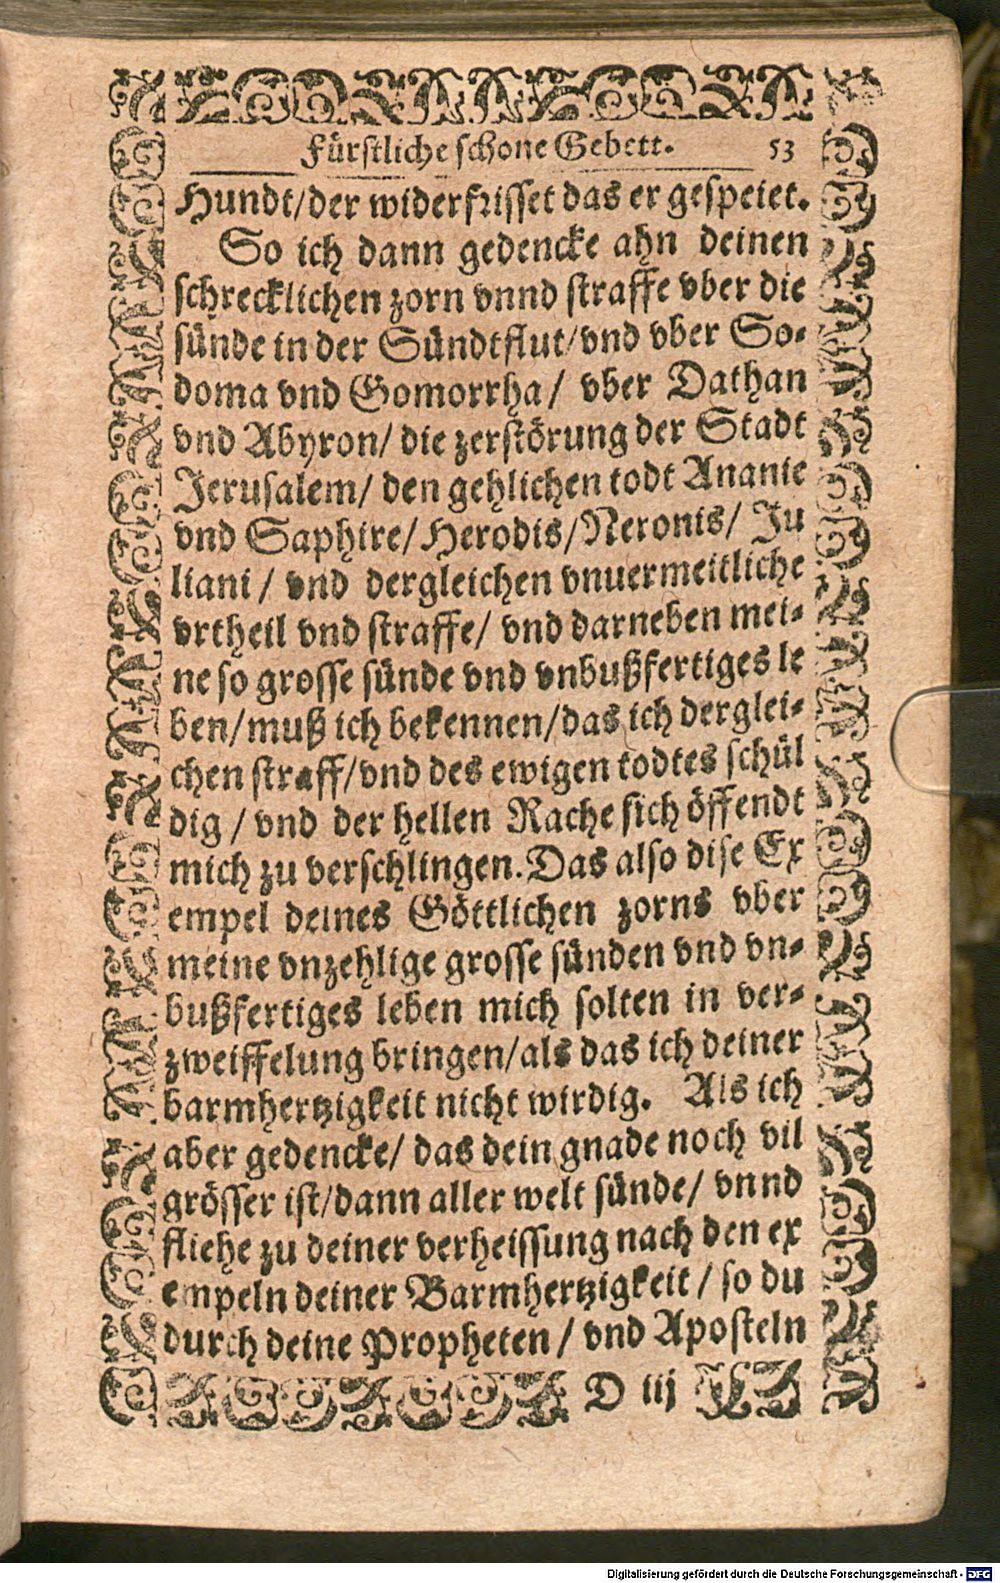 Fürstliche schone Gebett. 53
Hundt/der widerfrisset das er gespeiet.
So ich dann gedencke ahn deinen
schrecklichen zorn vnnd straffe vber die
sünde in der Sündtflut/vnd vber So-
doma vnd Gomorrha/ vber Dathan
vnd Abyron/ die zerstörung der Stadt
Jerusalem/ den gehlichen todt Ananie
vnd Saphire/ Herodis/Neronis/ Ju
liani / vnd dergleichen vnuermeitliche
vrtheil vnd straffe/ vnd darneben mei-
ne so grosse sünde vnd vnbußfertiges le
ben/muß ich bekennen/das ich derglei-
chen straff/vnd des ewigen todtes schül
dig / vnd der hellen Rache sich öffendt
mich zu verschlingen. Das also dise Ex
empel deines Göttlichen zorns vber
meine vnzehlige grosse sünden vnd vn-
bußfertiges leben mich solten in ver-
zweiffelung bringen/als das ich deiner
barmhertzigkeit nicht wirdig. Als ich
aber gedencke/ das dein gnade noch vil
grösser ist/dann aller welt sünde/ vnnd
fliehe zu deiner verheissung nach den ex
empeln deiner Barmhertzigkeit / so du
durch deine Propheten / vnd Aposteln
D iij
Digitalisierung gefördert durch die Deutsche Forschungsgemeinschaft - DFG